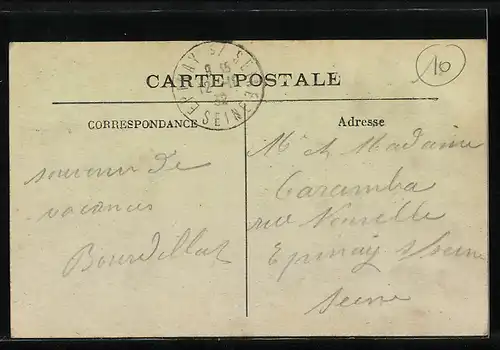 EPINAY S/ SEINE
9 15
12 - 12
32
SEINE
10
CARTE POSTALE
CORRESPONDANCE
Adresse
souvenir de
vacances
Bourdillat
Mr et Madame
Caramba
rue Nouvelle
Epinay s/seine
Seine